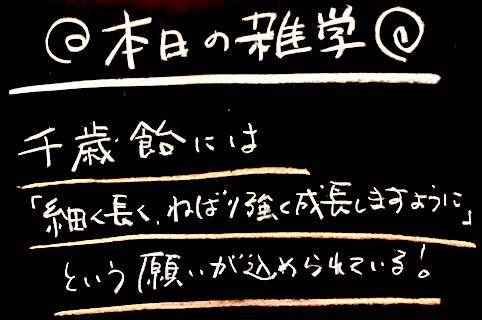 @本日の雑学@
千歳飴には
「細く長く、ねばり強く成長しますように」
という願いが込められている!